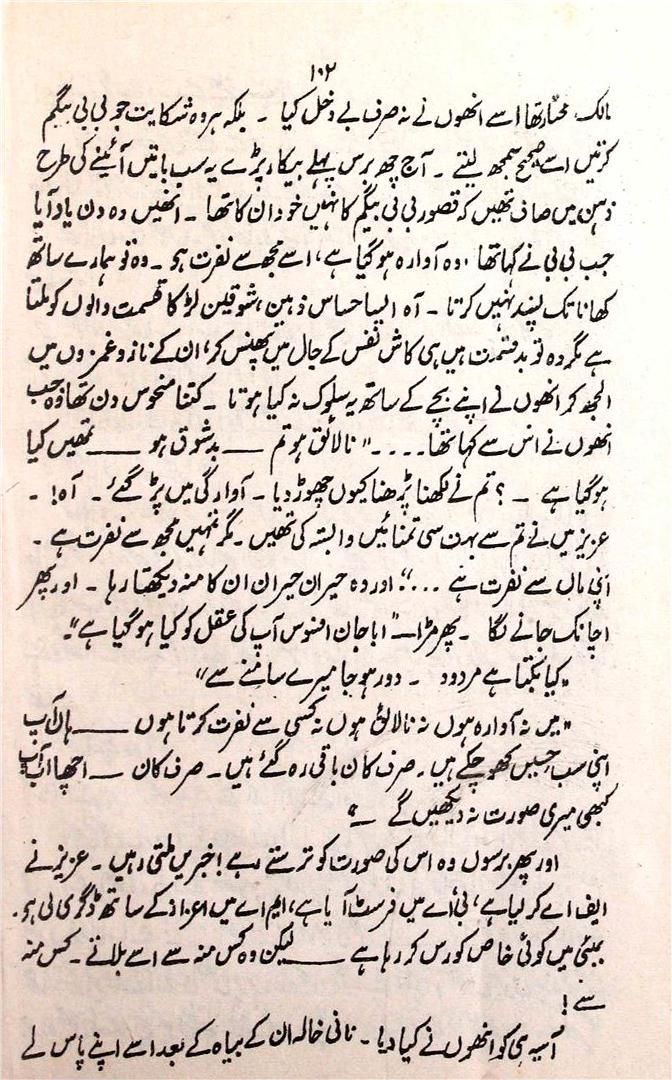 ۱۰۲
مالک، مختار تھا اسے انھوں نے نہ صرف بے دخل کیا ۔ بلکہ ہر وہ شکایت جو بی بی بیگم
کرتیں اسے صحیح سمجھ لیتے ۔ آج چھ برس پہلے بیکار پڑے یہ سب باتیں آئینے کی طرح
ذہن میں صاف تھیں کہ قصور بی بی بیگم کا نہیں خود ان کا تھا ۔ انھیں وہ دن یاد آیا
جب بی بی نے کہا تھا، وہ آوارہ ہو گیا ہے، اسے مجھ سے نفرت ہو ۔ وہ تو ہمارے ساتھ
کھانا تک پسند نہیں کرتا ۔ آہ ایسا حساس ذہین، شوقین لڑکا قسمت والوں کو ملتا
ہے مگر وہ تو بدقسمت ہیں ہی کاش نفس کے جال میں پھنس کر، ان کے ناز و غمزوں میں
الجھ کر انھوں نے اپنے بچے کے ساتھ یہ سلوک نہ کیا ہوتا ۔ کتنا منحوس دن تھا وہ جب
انھوں نے اس سے کہا تھا ۔۔۔۔ " نالائق ہو تم ــــ بدشوق ہو ــــ تمھیں کیا
ہو گیا ہے ۔ ؟ تم نے لکھنا پڑھنا کیوں چھوڑ دیا ۔ آوارگی میں پڑ گئے ۔ آہ! ۔
عزیز میں نے تم سے بہت سی تمنائیں وابستہ کی تھیں ۔ مگر تمہیں مجھ سے نفرت ہے ۔
اپنی ماں سے نفرت ہے ..." اور وہ حیران حیران ان کا منہ دیکھتا رہا ۔ اور پھر
اچانک جانے لگا ۔ پھر مڑا ــ " ابا جان افسوس آپ کی عقل کو کیا ہو گیا ہے "۔
" کیا بکتا ہے مردود ۔ دور ہو جا میرے سامنے سے "
" میں نہ آوارہ ہوں نہ نالائق ہوں نہ کسی سے نفرت کرتا ہوں ــــ ہاں آپ
اپنی سب حسیں کھو چکے ہیں ۔ صرف کان باقی رہ گئے ہیں ۔ صرف کان ــ اچھا اب آپ
کبھی میری صورت نہ دیکھیں گے ــ "
اور پھر برسوں وہ اس کی صورت کو ترستے رہے! خبریں ملتی رہیں ۔ عزیز نے
ایف اے کر لیا ہے، بی اے میں فرسٹ آیا ہے، ایم اے میں اعزاز کے ساتھ ڈگری لی ہو۔
بمبئی میں کوئی خاص کورس کر رہا ہے ــــ لیکن وہ کس منہ سے اسے بلاتے ۔ کس منہ
سے !
آسیہ ہی کو انھوں نے کیا دیا ۔ نانی خالہ ان کے بیاہ کے بعد اسے اپنے پاس لے